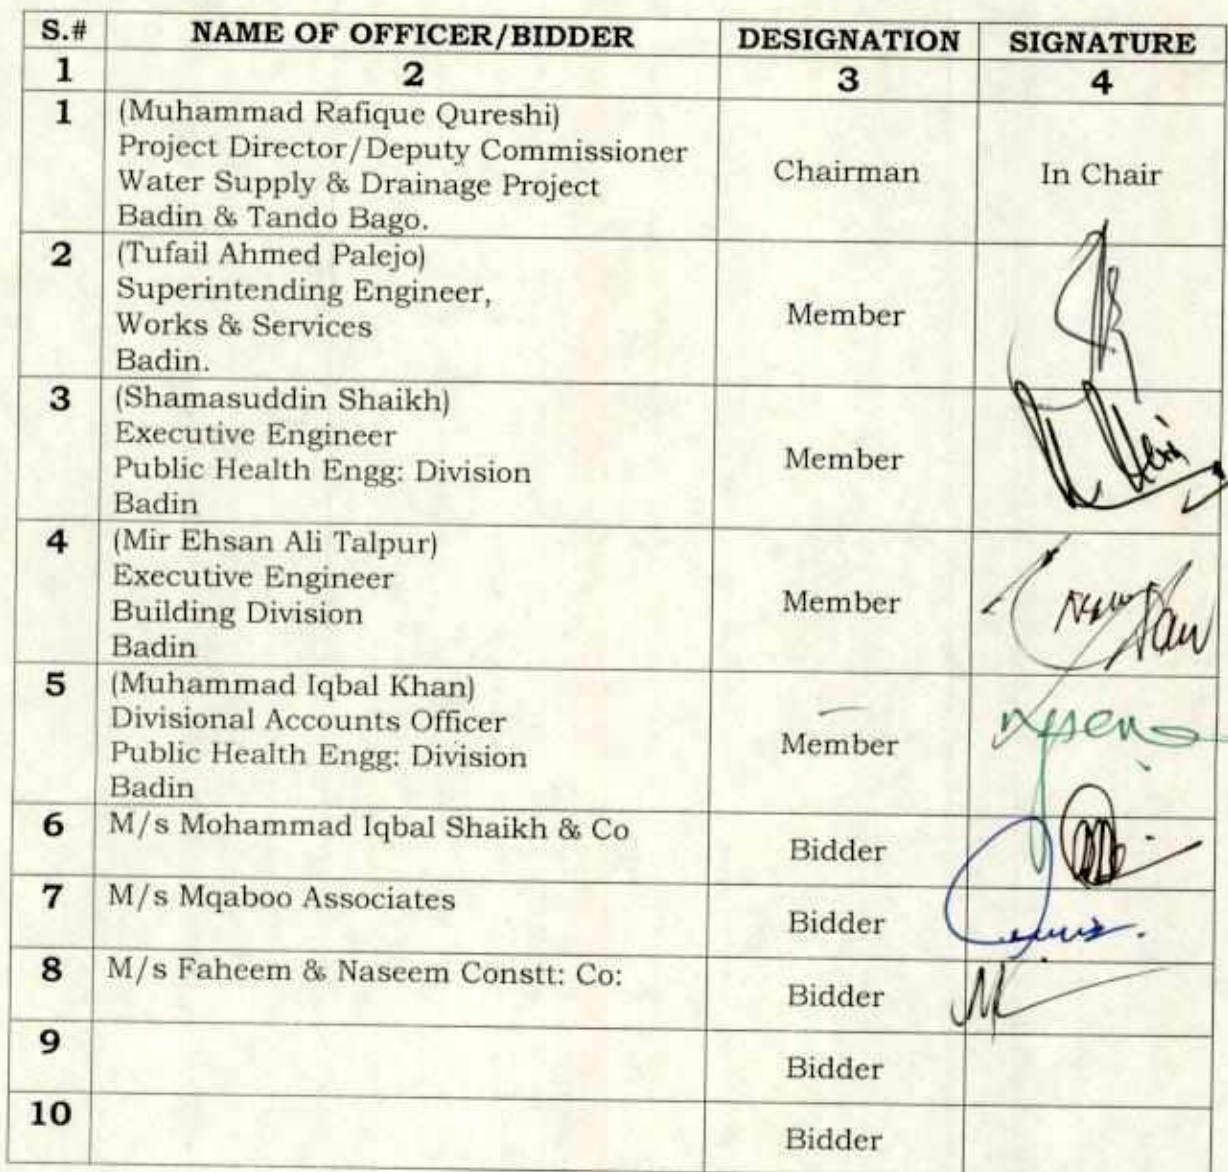 S.# NAME OF OFFICER/BIDDER DESIGNATION SIGNATURE
1 2 3 4
1 (Muhammad Rafique Qureshi)
Project Director/Deputy Commissioner
Water Supply & Drainage Project
Badin & Tando Bago.
Chairman In Chair
2 (Tufail Ahmed Palejo)
Superintending Engineer,
Works & Services
Badin.
Member
3 (Shamasuddin Shaikh)
Executive Engineer
Public Health Engg: Division
Badin
Member
4 (Mir Ehsan Ali Talpur)
Executive Engineer
Building Division
Badin
Member
5 (Muhammad Iqbal Khan)
Divisional Accounts Officer
Public Health Engg: Division
Badin
Member
6 M/s Mohammad Iqbal Shaikh & Co Bidder
7 M/s Mqaboo Associates Bidder
8 M/s Faheem & Naseem Constt: Co: Bidder
9 Bidder
10 Bidder